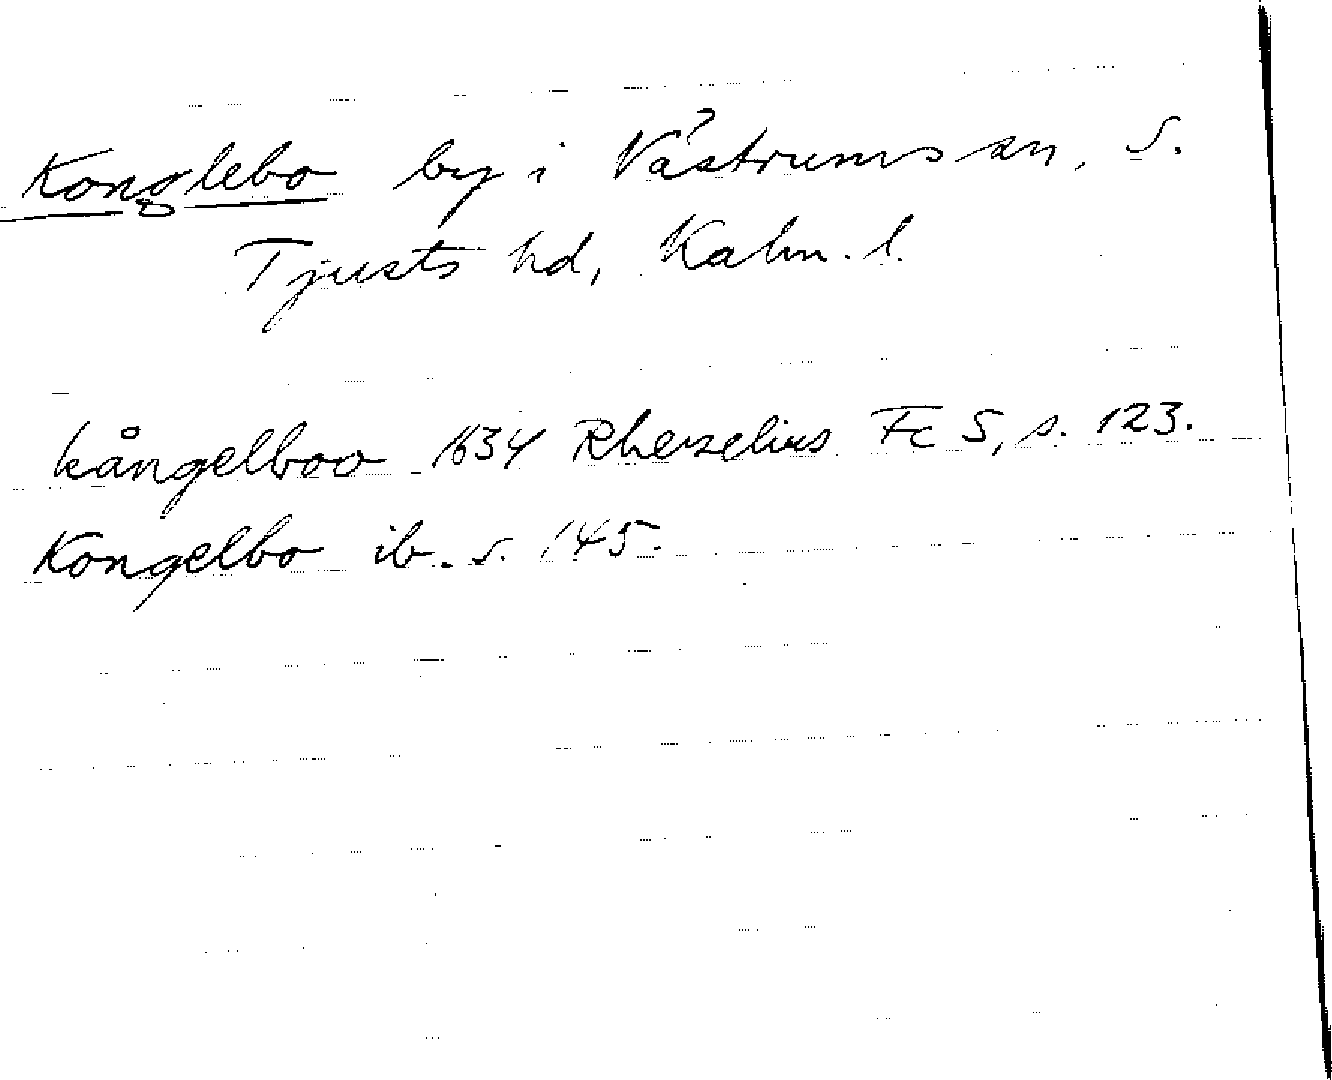 Konglebo by i Västrums sn, S.
Tjusts hd, Kalm. l.
kångelboo 1634 Rhezelius Fc 5, s. 123.
Kongelbo ib. s. 145.